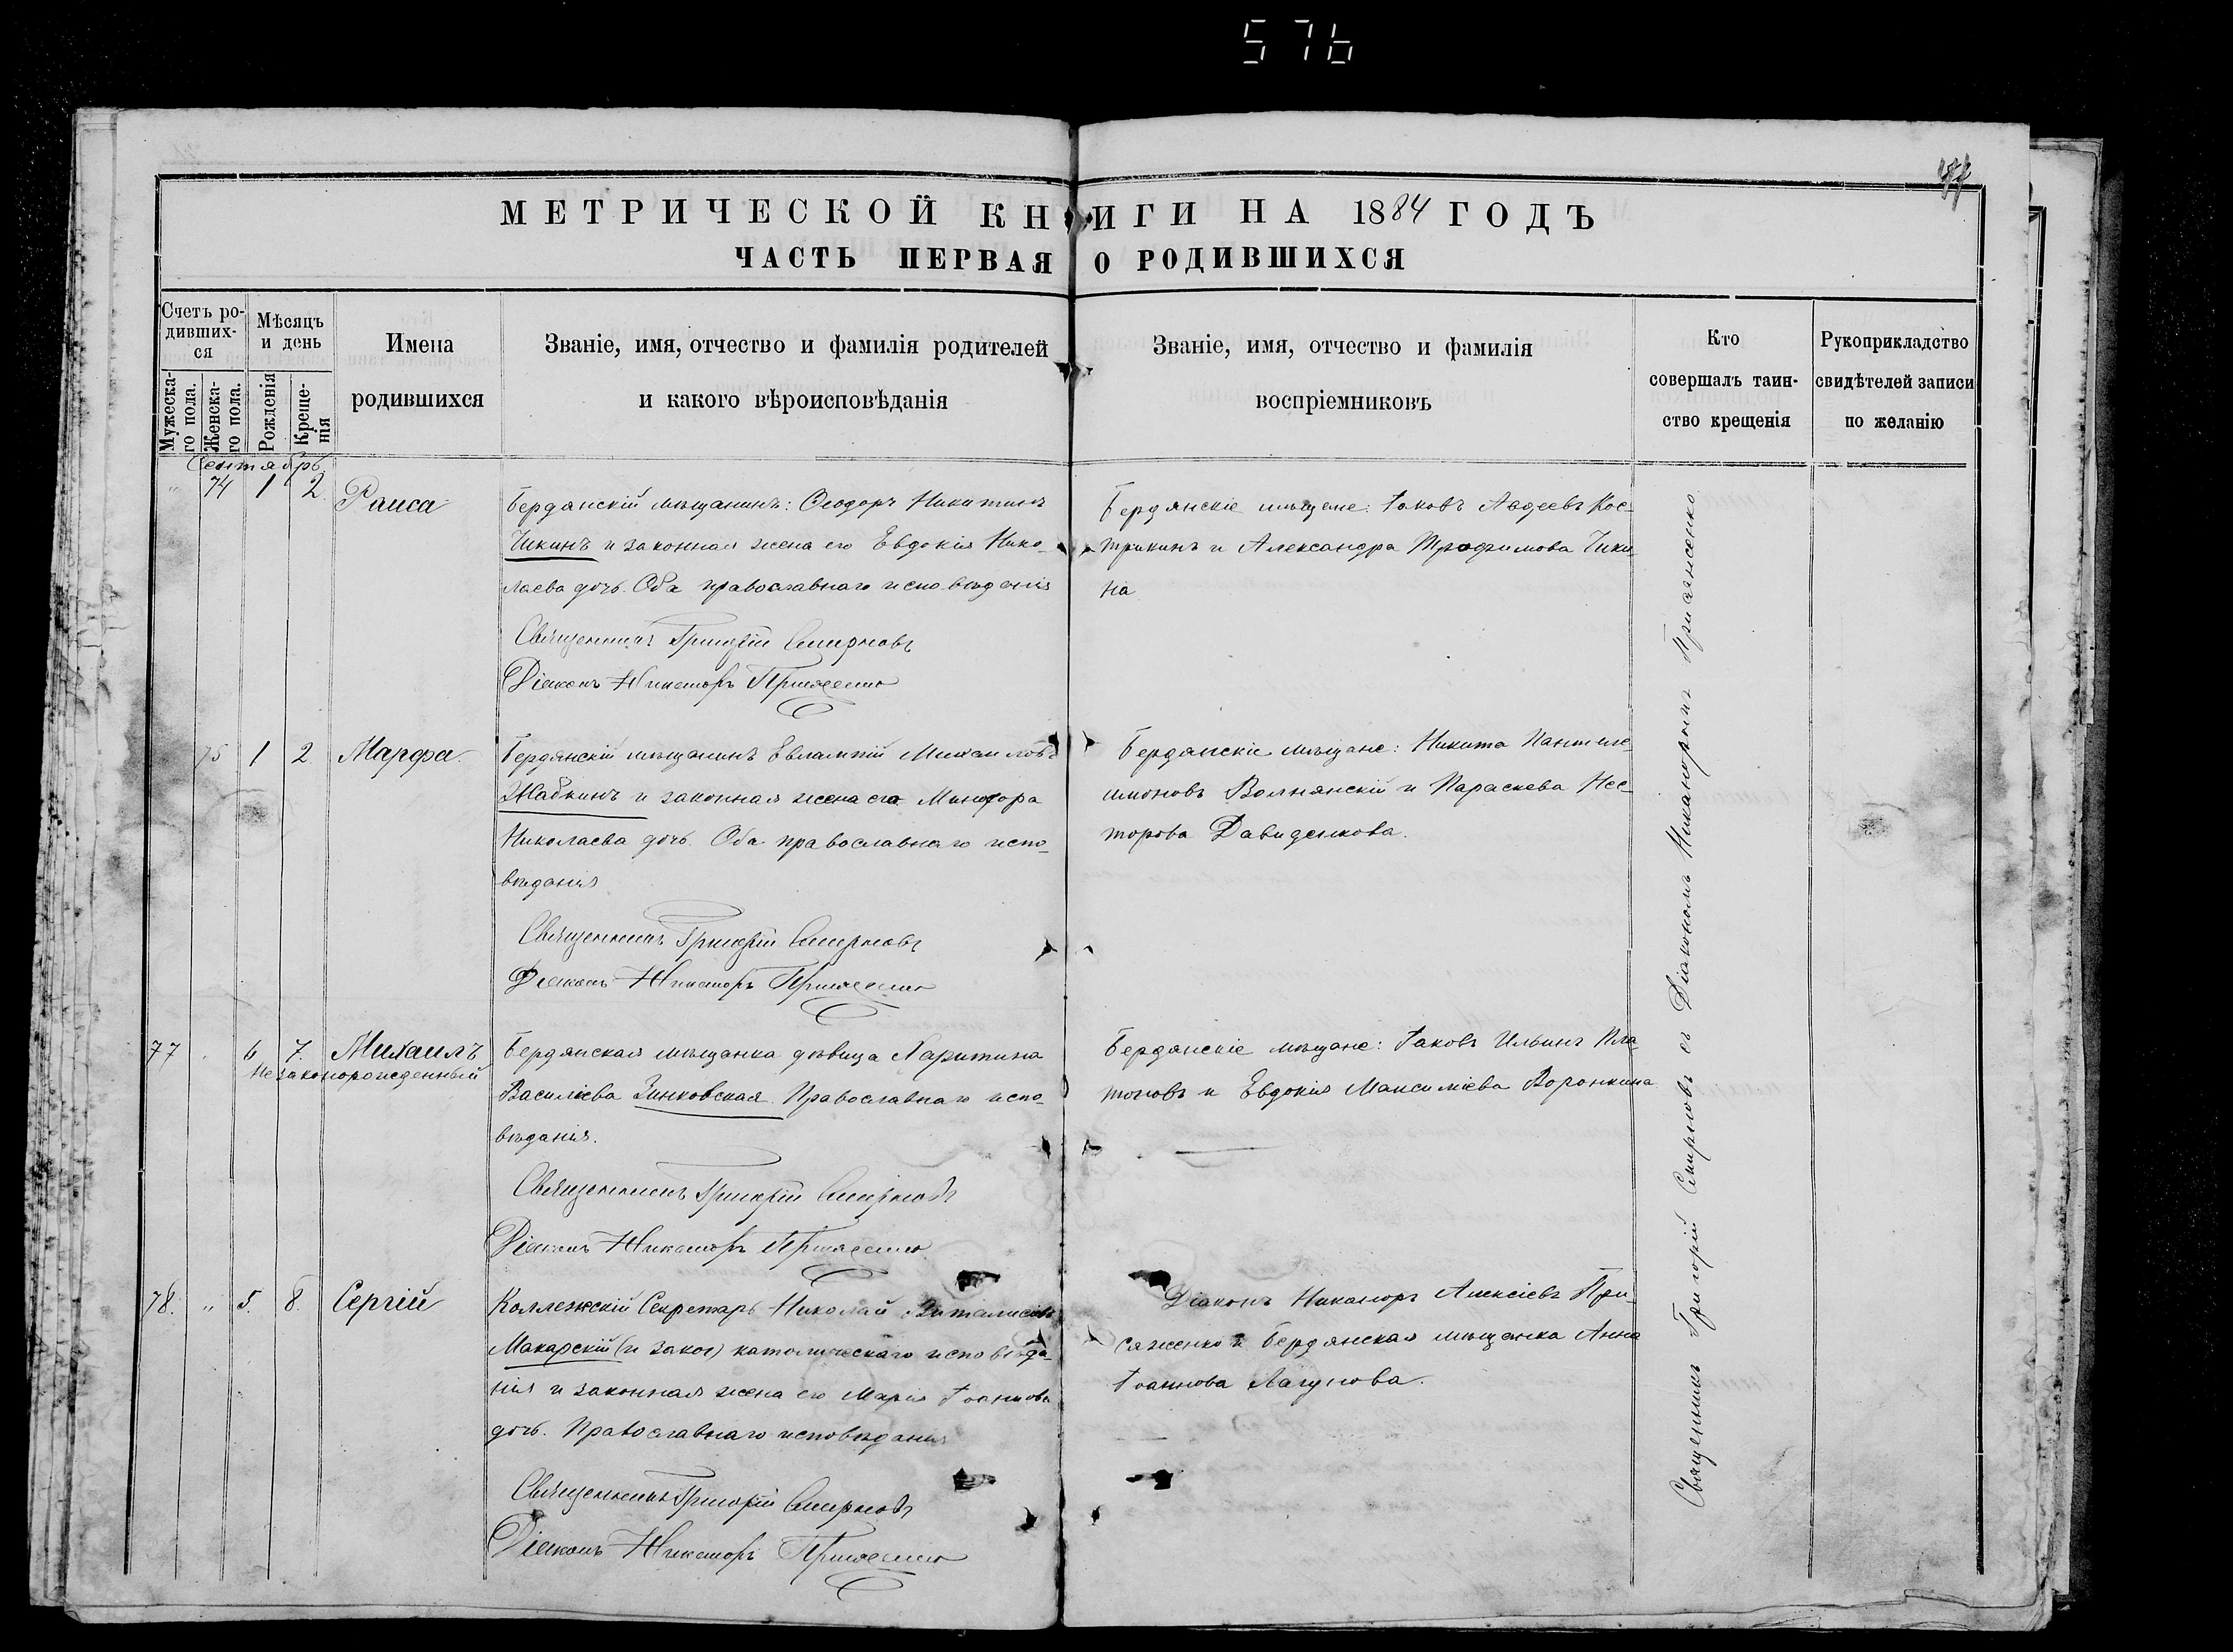 576
МЕТРИЧЕСКОЙ КНИГИ НА 1884 ГОДЪ
ЧАСТЬ ПЕРВАЯ О РОДИВШИХСЯ
Счетъ ро-
дивших-
ся
Мужеска-
го пола.
Женска-
го пола.
Мѣсяцъ
и день
Рожденія
Креще-
нія
Имена
родившихся
Званіе, имя, отчество и фамилія родителей
и какого вѣроисповѣданія
Званіе, имя, отчество и фамилія
воспріемниковъ
Кто
совершалъ таин-
ство крещенія
Рукоприкладство
свидѣтелей записи
по желанію
Сентябрь
" 74 1 2 Раиса
Бердянскій мѣщанинъ: Ѳеодоръ Никитинъ
Чикинъ и законная жена его Евдокія Нико-
лаева дочь. Оба православнаго исповѣданія
Священникъ Григорій Смирновъ
Діаконъ Никаноръ Присяженко
Бердянскіе мѣщане: Іаковъ Авдеевъ Кос-
трикинъ и Александра Трофимова Чики-
на
75 1 2 Марфа.
Бердянскій мѣщанинъ Евлампій Михаиловъ
Жабкинъ и законная жена его Минодора
Николаева дочь. Оба православнаго испо-
вѣданія
Священникъ Григорій Смирновъ
Діаконъ Никаноръ Присяженко
Бердянскіе мѣщане: Никита Пантеле-
имоновъ Волнянскій и Параскева Нес-
торова Давиденкова.
77 6 7. Михаилъ
Незаконорожденный
Бердянская мѣщанка дѣвица Харитина
Василіева Зинковская. Православнаго испо-
вѣданія.
Священникъ Григорій Смирновъ
Діаконъ Никаноръ Присяженко
Бердянскіе мѣщане: Іаковъ Ильинъ Пла-
тоновъ и Евдокія Максиміева Воронкина
78. " 5. 8. Сергій
Коллежскій Секретарь Николай
Макарскій (и католическаго исповѣда-
нія и законная жена его Марія Іоаннова
дочь. Православнаго исповѣданія
Священникъ Григорій Смирновъ
Діаконъ Никаноръ Присяженко
Діаконъ Никаноръ Алексіевъ При-
сяженко и Бердянская мѣщанка Анна
Іоаннова Лагунова.
Священникъ Григорій Смирновъ съ Діакономъ Никаноромъ Присяженко